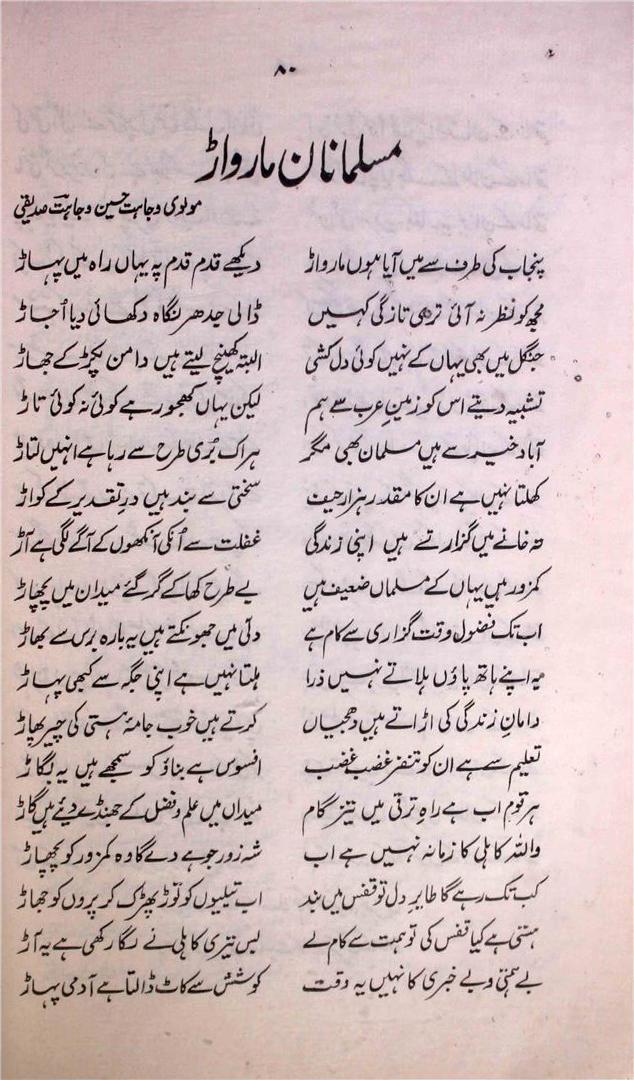 ۸۰
مسلمانان مارواڑ
مولوی وجاہت حسین وجاہت صدیقی
پنجاب کی طرف سے میں آیا ہوں مارواڑ دیکھے قدم قدم پہ یہاں راہ میں پہاڑ
مجھ کو نظر نہ آئی تری تازگی کہیں ڈالی جدھر نگاہ دکھائی دیا اُجاڑ
جنگل میں بھی یہاں کے نہیں کوئی دل کشی البتہ کھینچ لیتے ہیں دامن پکڑ کے جھاڑ
تشبیہ دیتے اس کو زمینِ عرب سے ہم لیکن یہاں کھجور ہے کوئی نہ کوئی تاڑ
آباد خیر سے ہیں مسلمان بھی مگر ہر اک بُری طرح سے رہا ہے انہیں لتاڑ
کھلتا نہیں ہے ان کا مقدر ہزار حیف سختی سے بند ہیں درِ تقدیر کے کواڑ
تہ خانے میں گزارتے ہیں اپنی زندگی غفلت سے اُنکی آنکھوں کے آگے لگی ہے آڑ
کمزور ہیں یہاں کے مسلماں ضعیف ہیں بے طرح کھا کے گر گئے میدان میں پچھاڑ
اب تک فضول وقت گزاری سے کام ہے دلّی میں جھونکتے ہیں یہ بارہ برس سے بھاڑ
یہ اپنے ہاتھ پاؤں ہلاتے نہیں ذرا ہلتا نہیں ہے اپنی جگہ سے کبھی پہاڑ
دامانِ زندگی کی اڑاتے ہیں دھجیاں کرتے ہیں خوب جامۂ ہستی کی چیر پھاڑ
تعلیم سے ہے ان کو تنفر غضب غضب افسوس ہے بناؤ کو سمجھے ہیں یہ بگاڑ
ہر قوم اب ہے راہِ ترقی میں تیز گام میداں میں علم و فضل کے جھنڈے دیئے ہیں گاڑ
واللہ کاہلی کا زمانہ نہیں ہے اب شہ زور جو ہے دے گا وہ کمزور کو پچھاڑ
کب تک رہے گا طایرِ دل تو قفس میں بند اب تیلیوں کو توڑ پھڑک کر پروں کو جھاڑ
ہستی ہے کیا قفس کی تو ہمت سے کام لے بس تیری کاہلی نے لگا رکھی ہے یہ آڑ
بے ہمتی و بے خبری کا نہیں یہ وقت کوشش سے کاٹ ڈالتا ہے آدمی پہاڑ